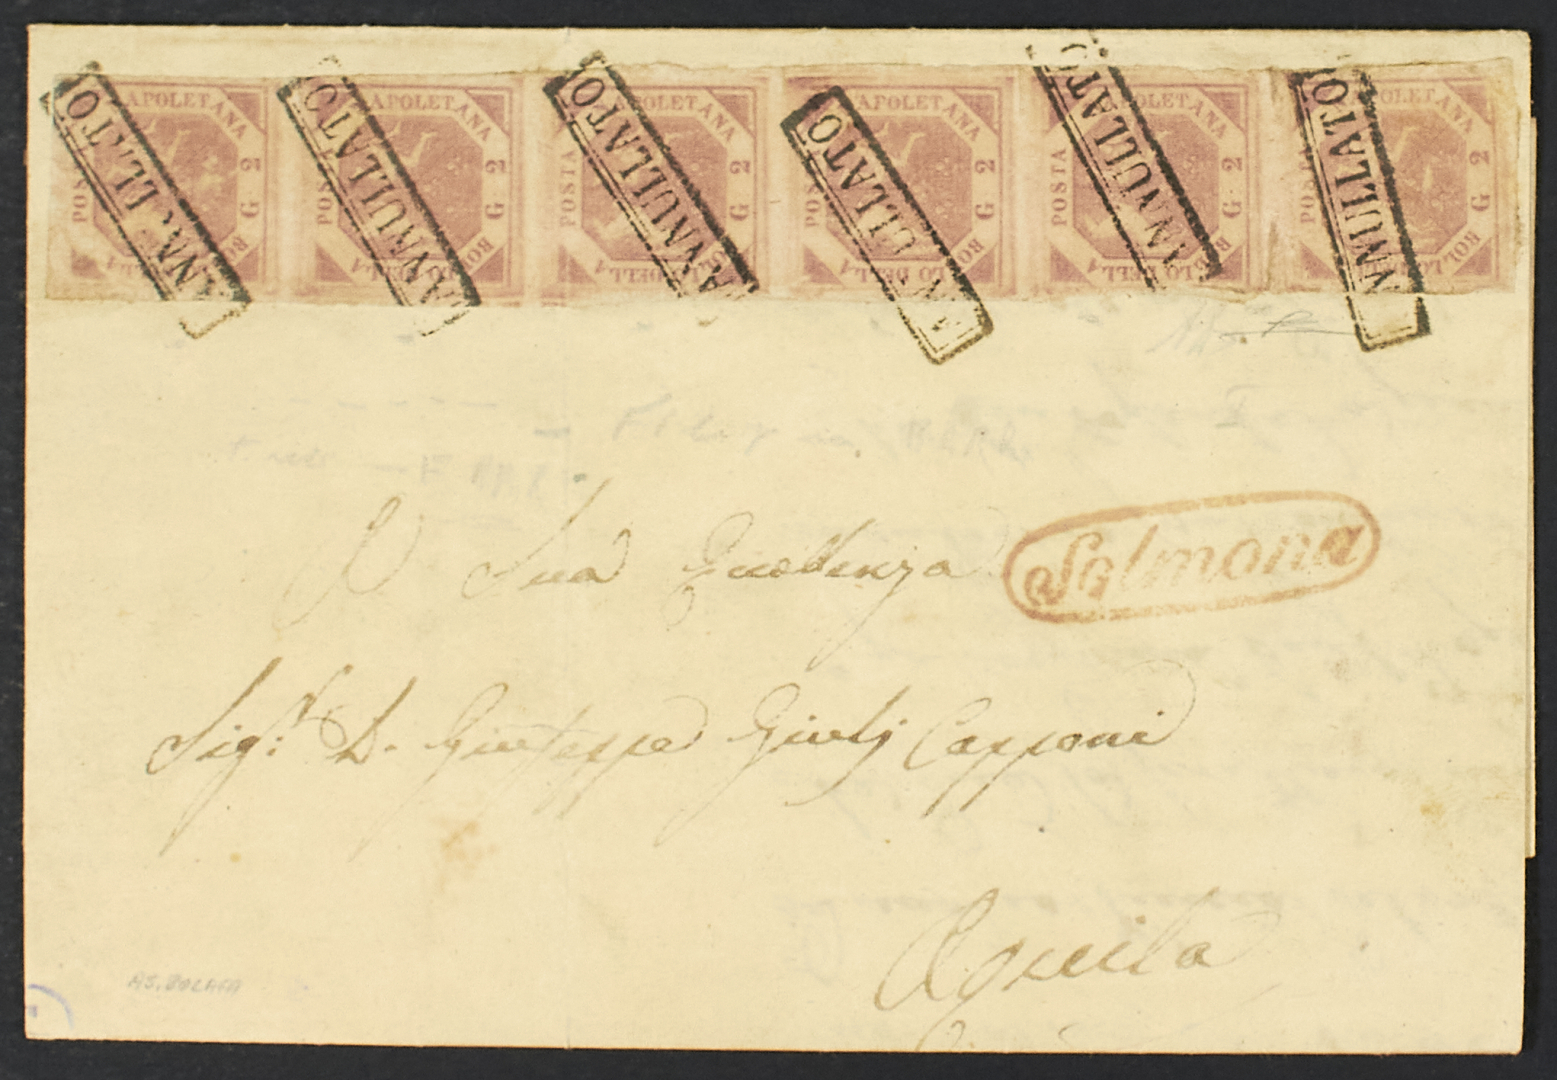 POSTA NAPOLETANA BOLLO DELLA G 2
POSTA NAPOLETANA BOLLO DELLA G 2
POSTA NAPOLETANA BOLLO DELLA G 2
POSTA NAPOLETANA BOLLO DELLA G 2
POSTA NAPOLETANA BOLLO DELLA G 2
POSTA NAPOLETANA BOLLO DELLA G 2
ANNULLATO
ANNULLATO
ANNULLATO
ANNULLATO
ANNULLATO
ANNULLATO
A Sua Eccellenza
Solmona
Sigr. D. Giuseppe Giulj Capponi
Aquila
AS. BOLAFFI